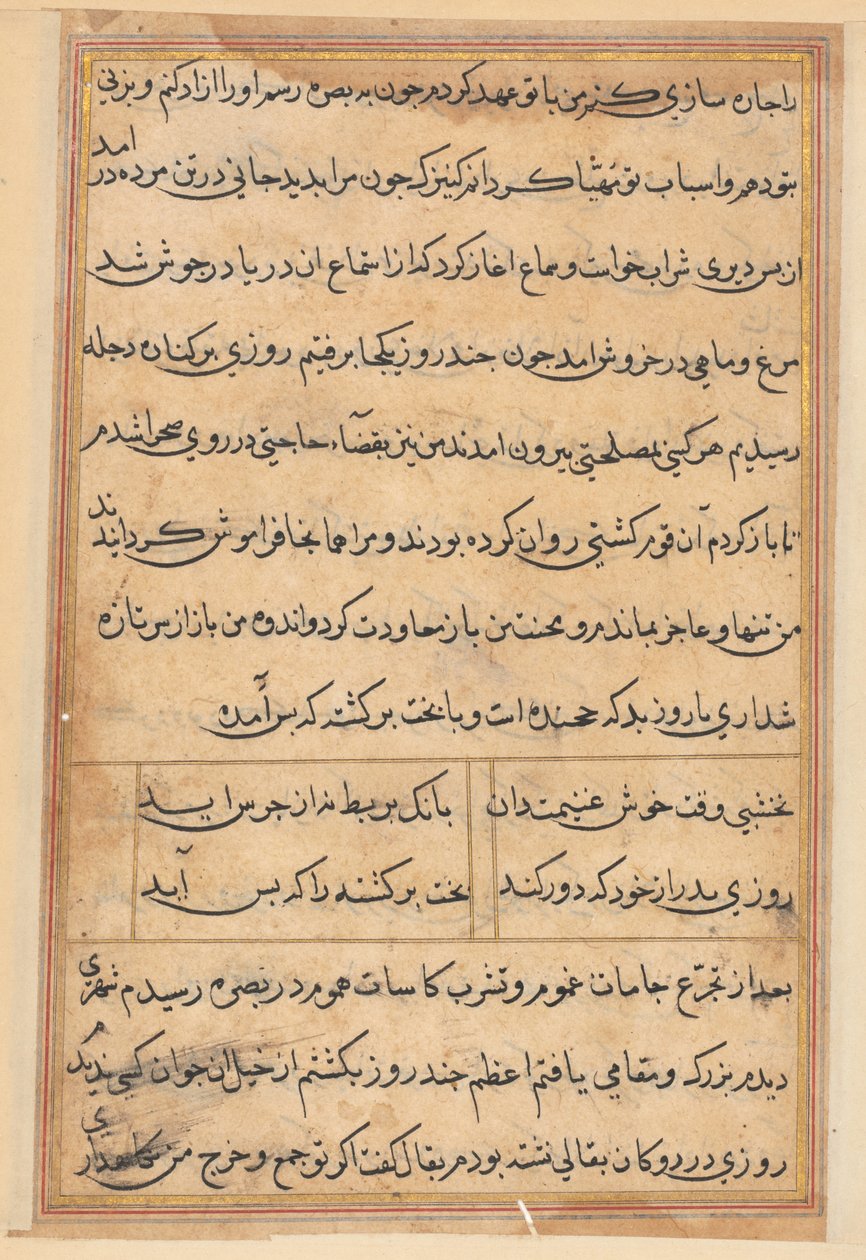 را جاره سازي كنم من با تو عهد كردم جون به بصره رسم او را ازاد كنم و بزني
بتو دهم و اسباب تو مهيّا كردانم كنيزك جون مرا بديد جاني در تن مرده در امد
از بس ديرى شراب خواست و سماع اغاز كرد كه از استماع ان دريا در جوش شد
مرغ و ماهي در خروش امد جون جند روز يكجا برفتيم روزي بر كناره دجله
رسيديم هر كسي بمصلحتي بيرون امدند من نيز بقضآء حاجتي در روي صحرا شدم
تا باز كردم آن قوم كشتي روان كرده بودند و مرا همانجا فراموش كردانيدند
من تنها و عاجز بماندم و محنت من باز معاودت كرد و اندوه من باز از سر تازه
شد اري با روز بد كه است و با بخت بر كشته كه بس آمده
نخشبي وقت خوش غنيمت دان
بانك بربط نه از جرس ايد
روزي بد را از خود كه دور كند
بخت بر كشته را كه بس آيد
بعد از تجرّع جامات غموم و تشرب كاسات هموم در بصره رسيدم شهري
ديدم بزرك و مقامي يافتم اعظم جند روز بكشتم از خيل ان جوان كسي نديدم
روزي در دوكان بقالي نشسته بودم بقال كفت اكر تو جمع و خرج من نكاهداري